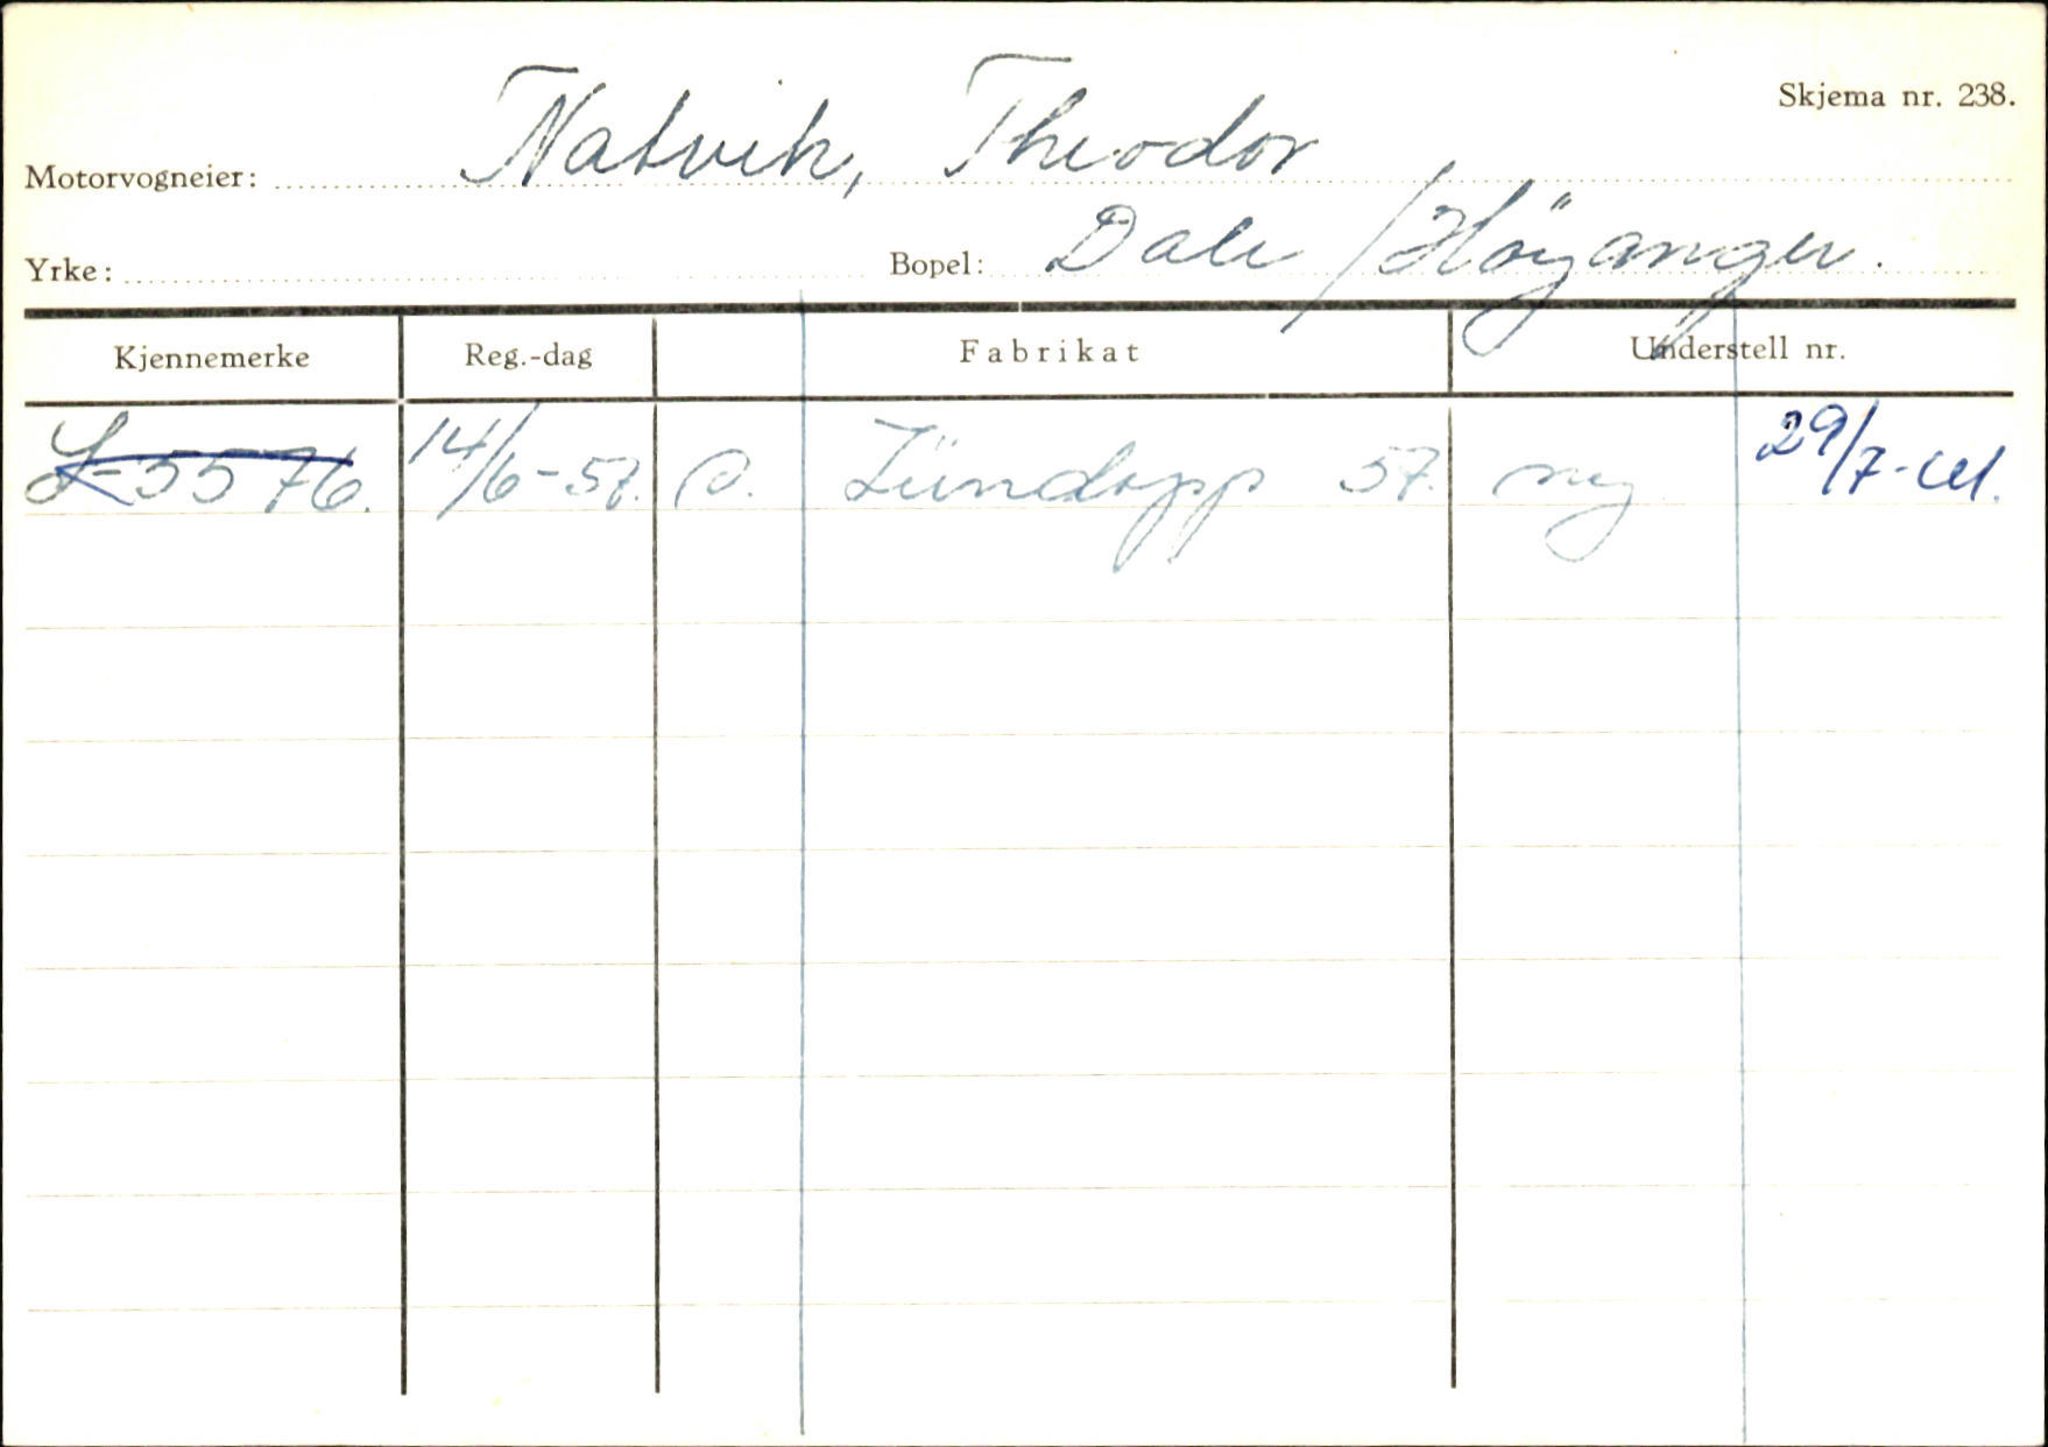 Skjema nr. 238.
Motorvogneier: Natvik, Theodor
Yrke: Bopel: Dale / Höyanger.
Kjennemerke Reg.-dag Fabrikat Understell nr.
S-5576. 14/6-57. Zündapp 57. ny 29/7-61.